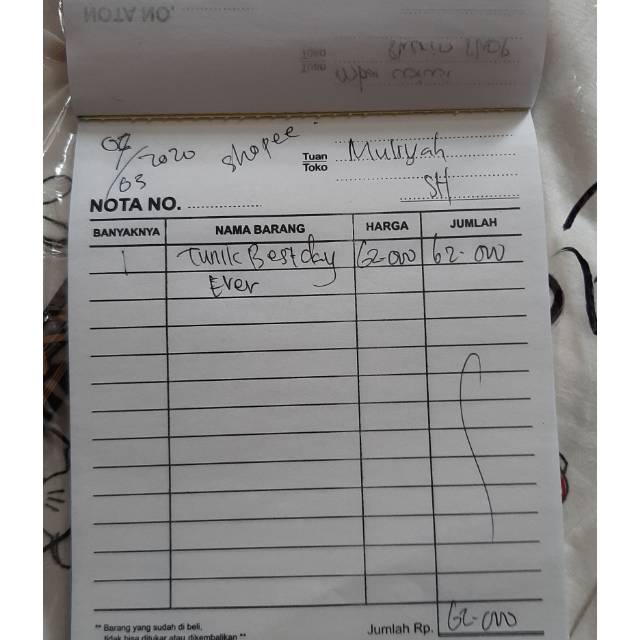 NOTA NO.
Toko
Tuan
04/03 2020
Shopee
Tuan
Toko
Muliyah
SH
NOTA NO.
BANYAKNYA NAMA BARANG HARGA JUMLAH
1 Tunik Best day 62.000 62.000
Ever
Jumlah Rp. 62.000
** Barang yang sudah di beli,
tidak bisa ditukar atau dikembalikan **